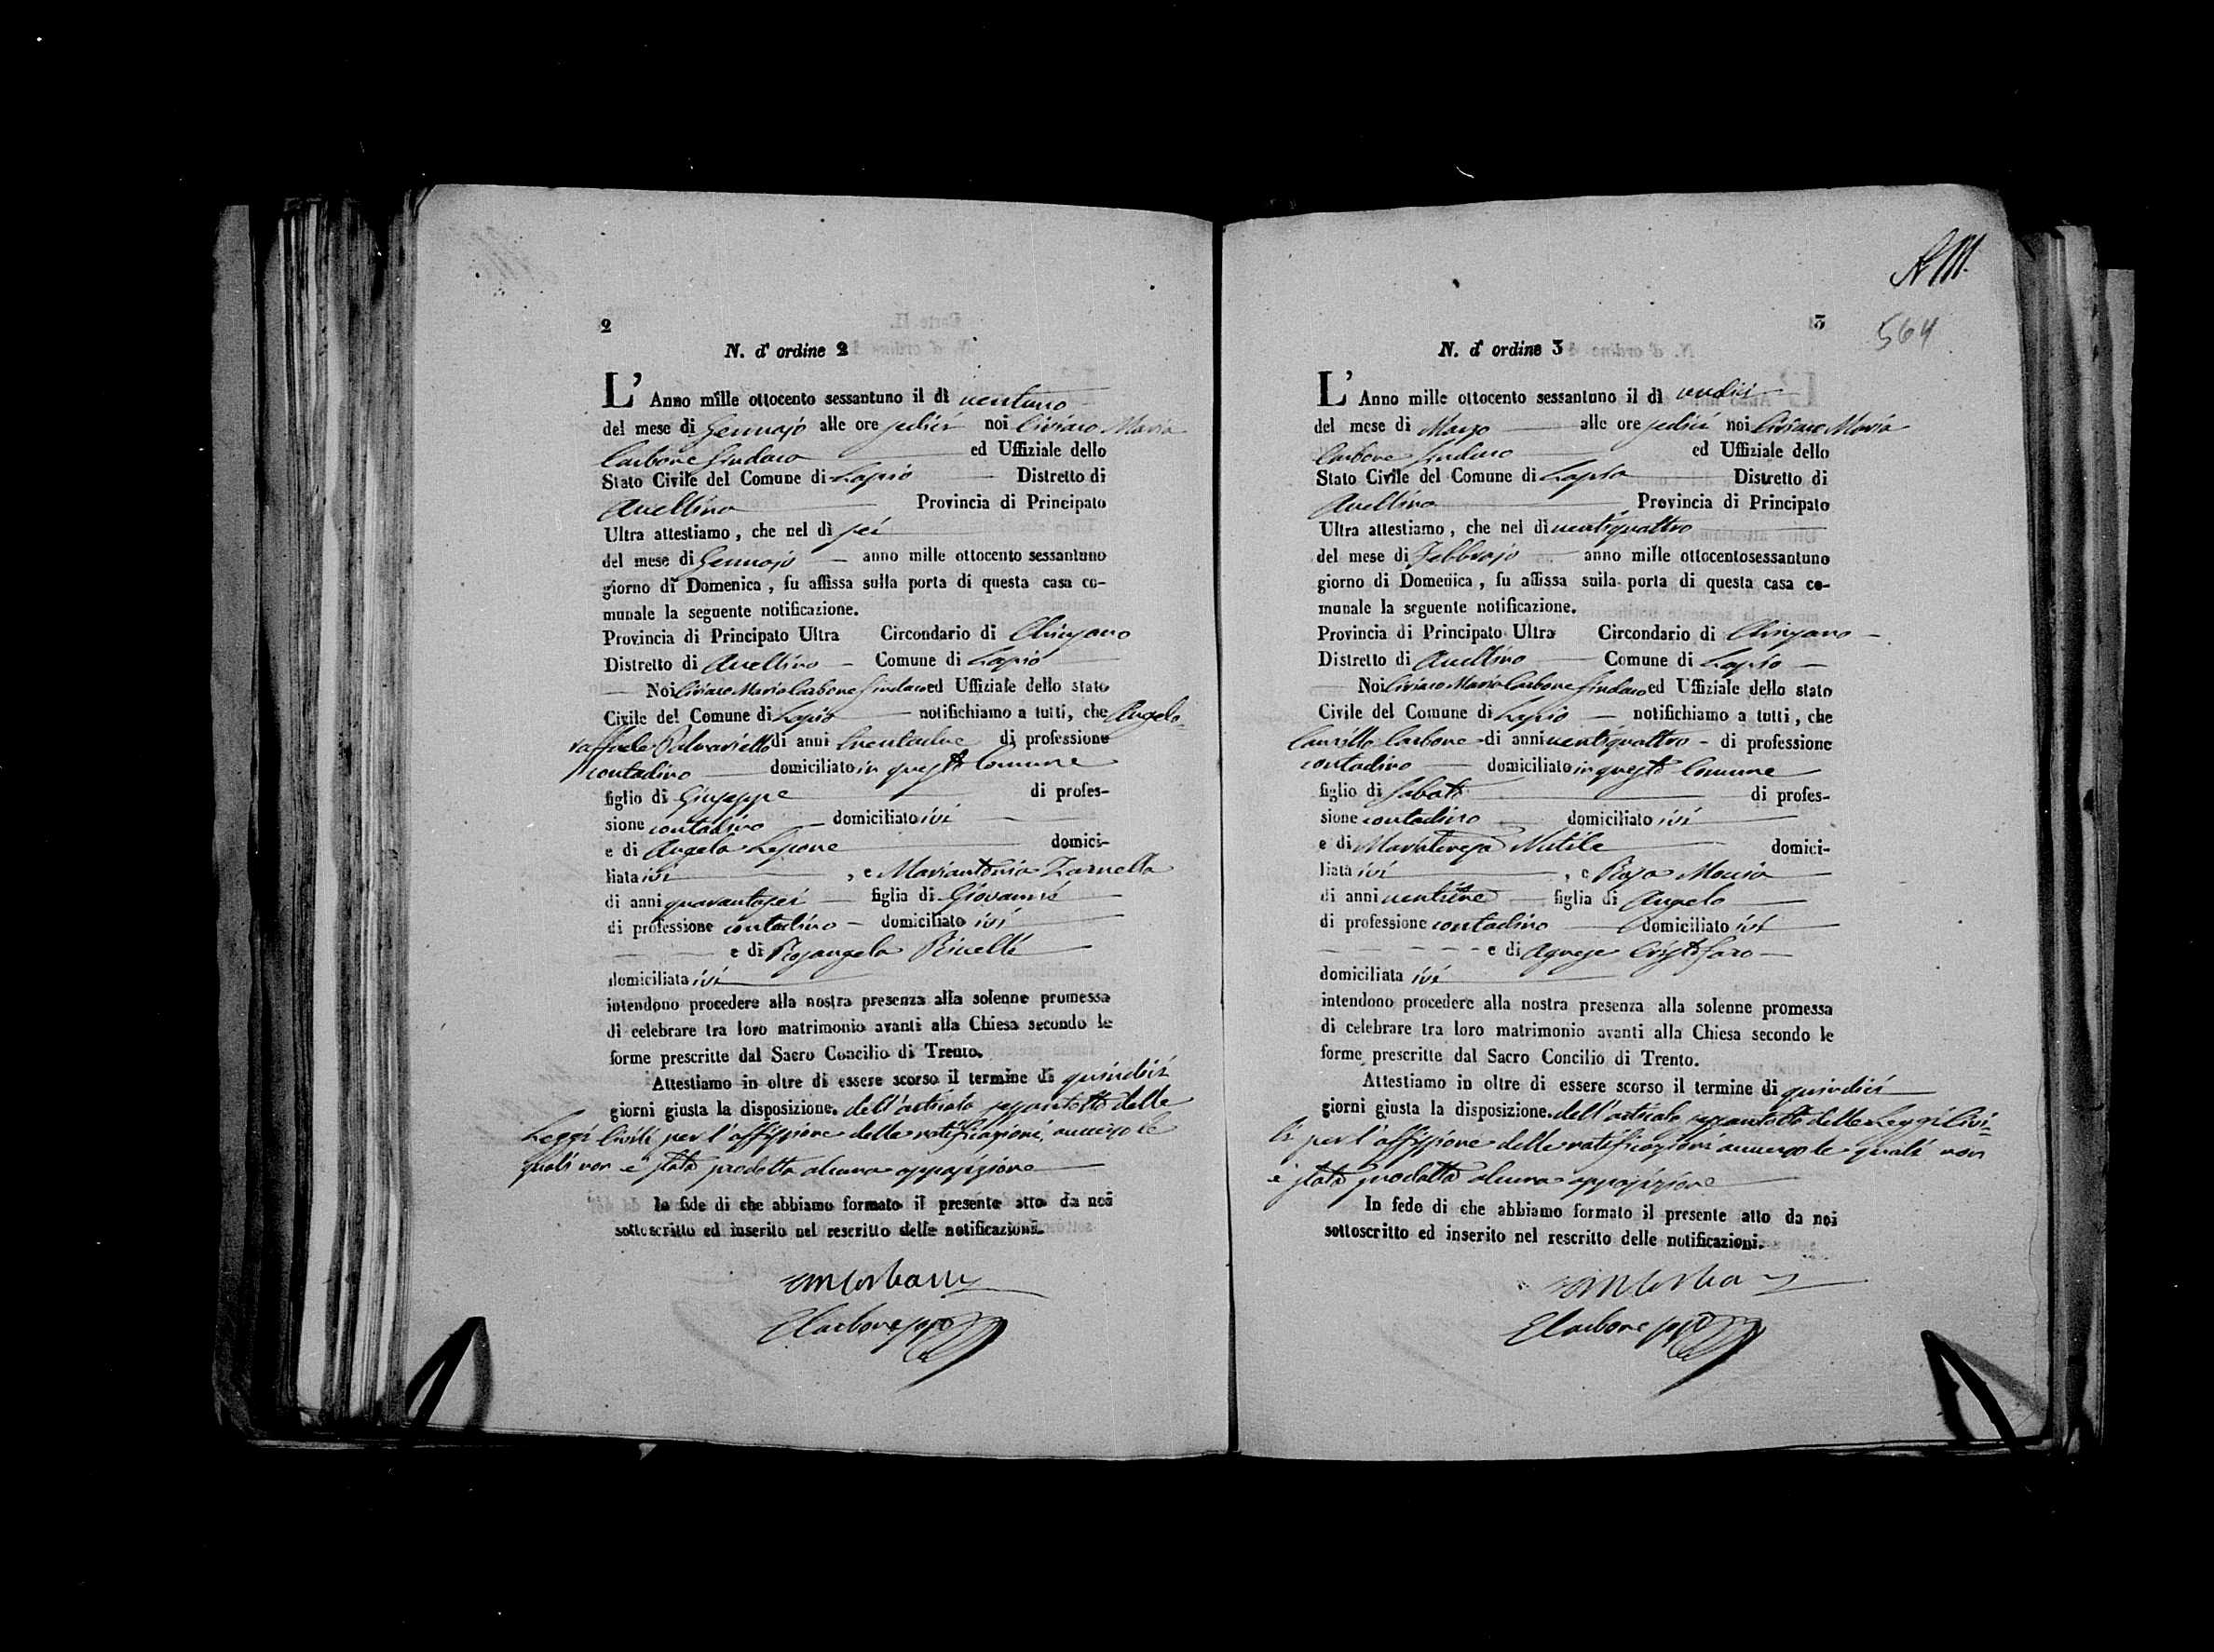 2
N. d' ordine 2
L' Anno mille ottocento sessantuno il dì ventuno
del mese di Gennajo alle ore sedici noi Ciriaco Maria
Carbone Sindaco ed Uffiziale dello
Stato Civile del Comune di Lapio Distretto di
Avellino Provincia di Principato
Ultra attestiamo, che nel dì sei
del mese di Gennajo anno mille ottocento sessantuno
giorno di Domenica, fu affissa sulla porta di questa casa co-
munale la seguente notificazione.
Provincia di Principato Ultra Circondario di Chiusano
Distretto di Avellino Comune di Lapio
Noi Ciriaco Maria Carbone Sindaco ed Uffiziale dello stato
Civile del Comune di Lapio notifichiamo a tutti, che Angelo-
raffaele di anni trentadue di professione
contadino domiciliato in questo Comune
figlio di Giuseppe di profes-
sione contadino domiciliato ivi
e di Angela Lepone domici-
liata ivi, e Mariantonia Zarrella
di anni quarantasei figlia di Giovanni
di professione contadino domiciliato ivi
e di Rosangela
domiciliata ivi
intendono procedere alla nostra presenza alla solenne promessa
di celebrare tra loro matrimonio avanti alla Chiesa secondo le
forme prescritte dal Sacro Concilio di Trento.
Attestiamo in oltre di essere scorso il termine di quindici
giorni giusta la disposizione. dell'articolo sessantotto delle
Leggi Civili per l'affissione delle notificazioni, avverso le
quali non è stata prodotta alcuna opposizione
In fede di che abbiamo formato il presente atto da noi
sottoscritto ed inserito nel rescritto delle notificazioni.
CMCarbone
Carbone
3
564
N. d' ordine 3
L' Anno mille ottocento sessantuno il dì undici
del mese di Marzo alle ore sedici noi Ciriaco Maria
Carbone Sindaco ed Uffiziale dello
Stato Civile del Comune di Lapio Distretto di
Avellino Provincia di Principato
Ultra attestiamo, che nel dì ventiquattro
del mese di Febbrajo anno mille ottocentosessantuno
giorno di Domenica, fu affissa sulla porta di questa casa co-
munale la seguente notificazione.
Provincia di Principato Ultra Circondario di Chiusano
Distretto di Avellino Comune di Lapio
Noi Ciriaco Maria Carbone Sindaco ed Uffiziale dello stato
Civile del Comune di Lapio notifichiamo a tutti, che
Camillo Carbone di anni ventiquattro di professione
contadino domiciliato in questo Comune
figlio di Sabato di profes-
sione contadino domiciliato ivi
e di Mariateresa Nutile domici-
liata ivi, e Rosa
di anni figlia di Angelo
di professione contadino domiciliato ivi
e di Agnese Cristofaro
domiciliata ivi
intendono procedere alla nostra presenza alla solenne promessa
di celebrare tra loro matrimonio avanti alla Chiesa secondo le
forme prescritte dal Sacro Concilio di Trento.
Attestiamo in oltre di essere scorso il termine di quindici
giorni giusta la disposizione. dell'articolo sessantotto delle Leggi Civi-
li per l'affissione delle notificazioni avverso le quali non
è stata prodotta alcuna opposizione
In fede di che abbiamo formato il presente atto da noi
sottoscritto ed inserito nel rescritto delle notificazioni.
CMCarbone
Carbone